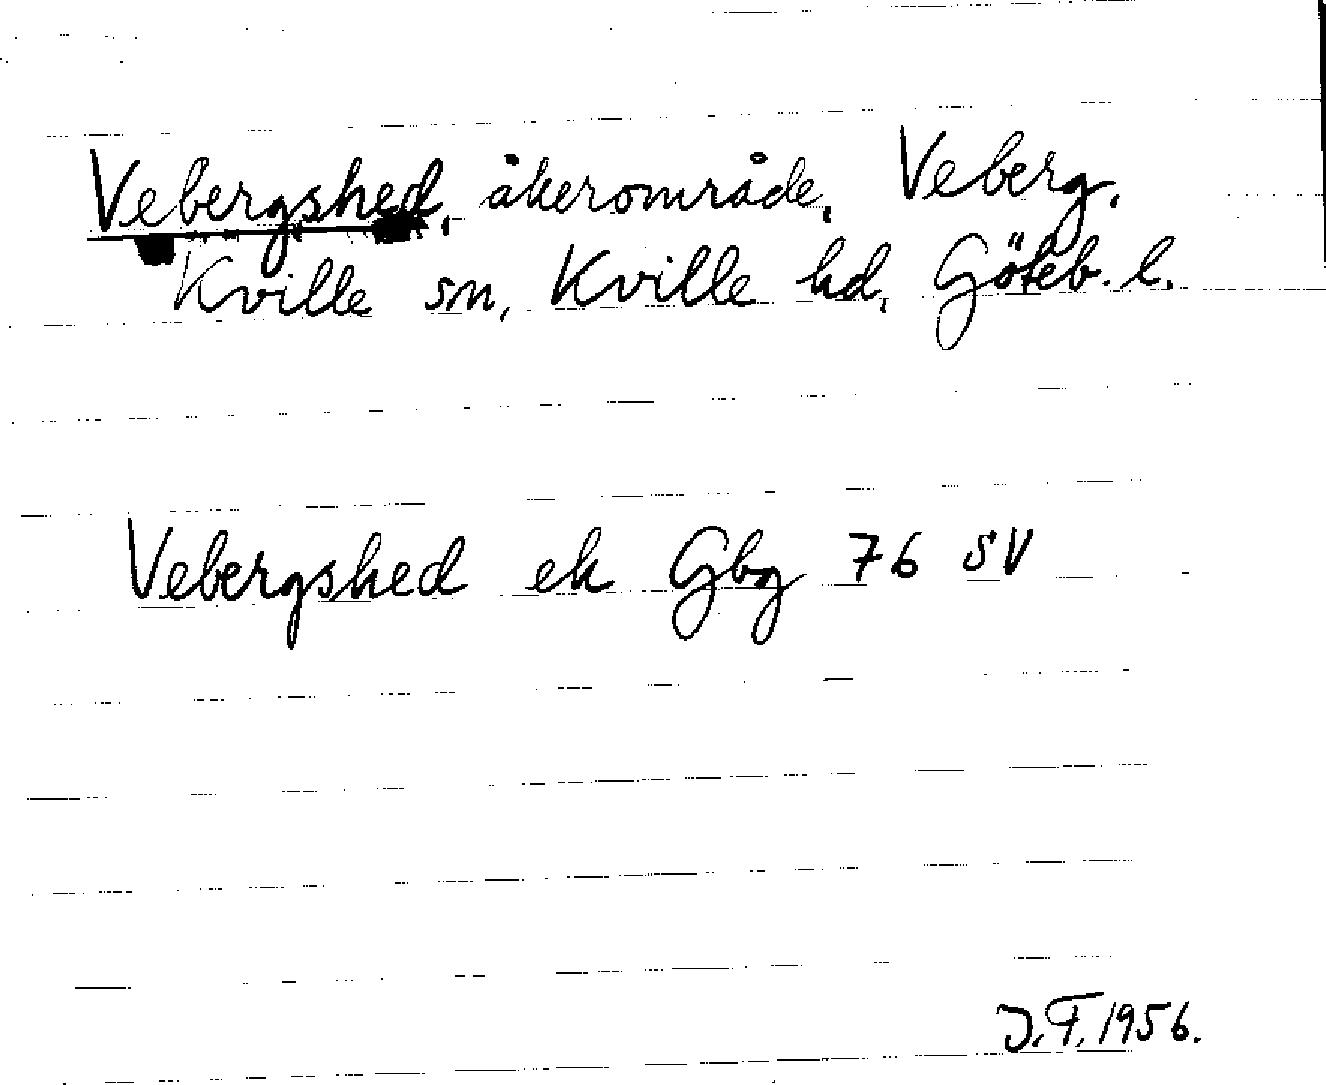 Vebergshed, åkerområde, Veberg,
Kville sn, Kville hd, Göteb. l.
Vebergshed ek Gbg 76 SV
J.F. 1956.